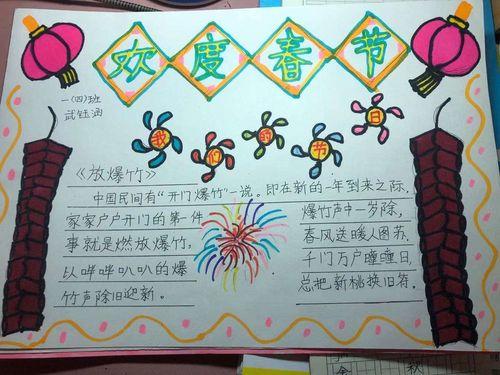 欢度春节
一(四)班
武钰涵
我们的节日
《放爆竹》
中国民间有“开门爆竹”一说。即在新的一年到来之际,
家家户户开门的第一件
事就是燃放爆竹,
以哔哔叭叭的爆
竹声除旧迎新。
爆竹声中一岁除,
春风送暖人图苏,
千门万户曈曈日,
总把新桃换旧符。